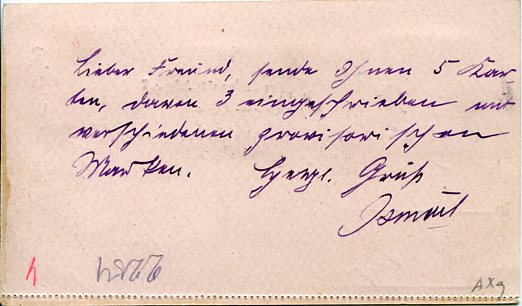 Lieber Freund, sende Ihnen 5 Kar-
ten, davon 3 eingeschrieben mit
verschiedenen provisorischen
Marken. Herzl. Gruß
Ismail
AXg